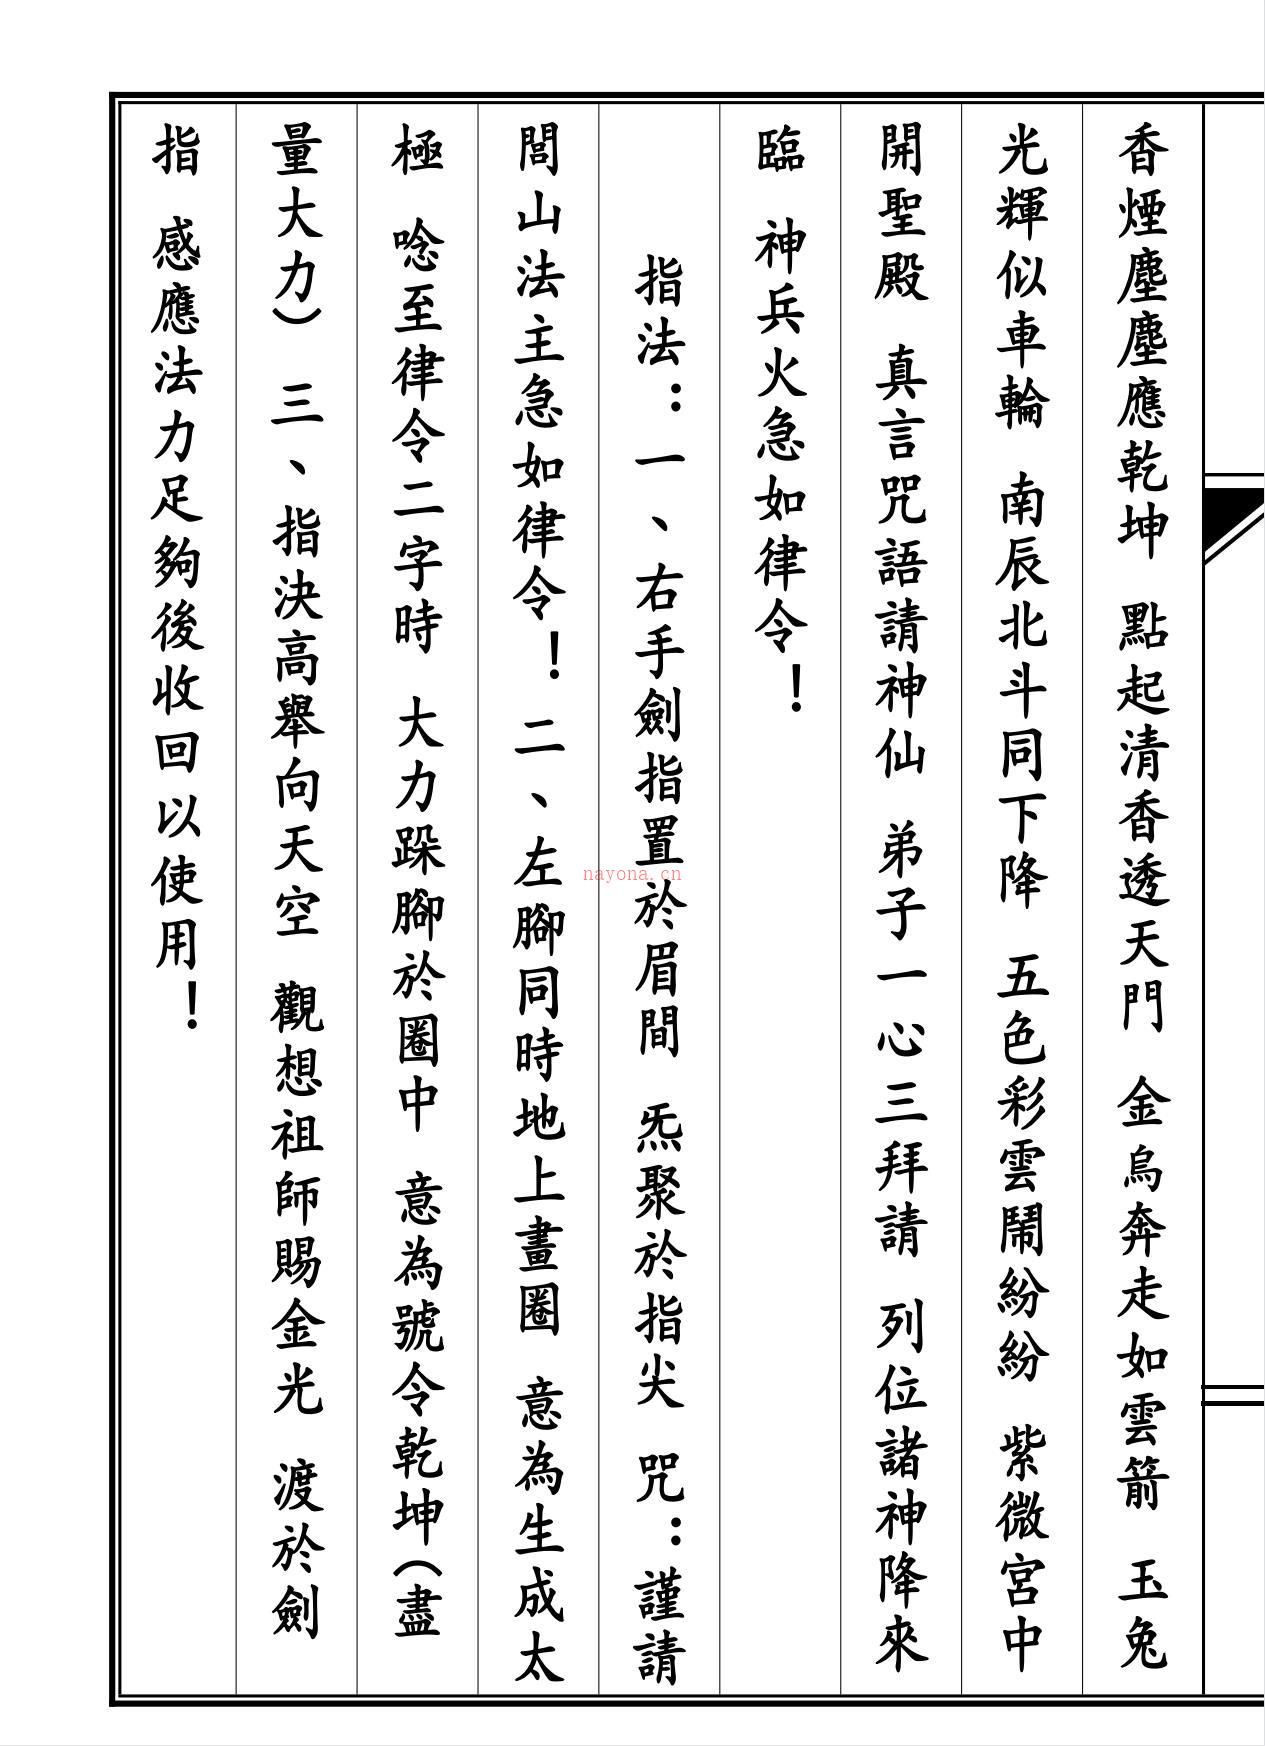 香煙塵塵應乾坤　點起清香透天門　金烏奔走如雲箭　玉兔
光輝似車輪　南辰北斗同下降　五色彩雲鬧紛紛　紫微宮中
開聖殿　真言咒語請神仙　弟子一心三拜請　列位諸神降來
臨　神兵火急如律令！
指法：一、右手劍指置於眉間　炁聚於指尖　咒：謹請
閭山法主急如律令！　二、左腳同時地上畫圈　意為生成太
極　唸至律令二字時　大力跺腳於圈中　意為號令乾坤（盡
量大力）　三、指決高舉向天空　觀想祖師賜金光　渡於劍
指　感應法力足夠後收回以使用！
nayona.cn